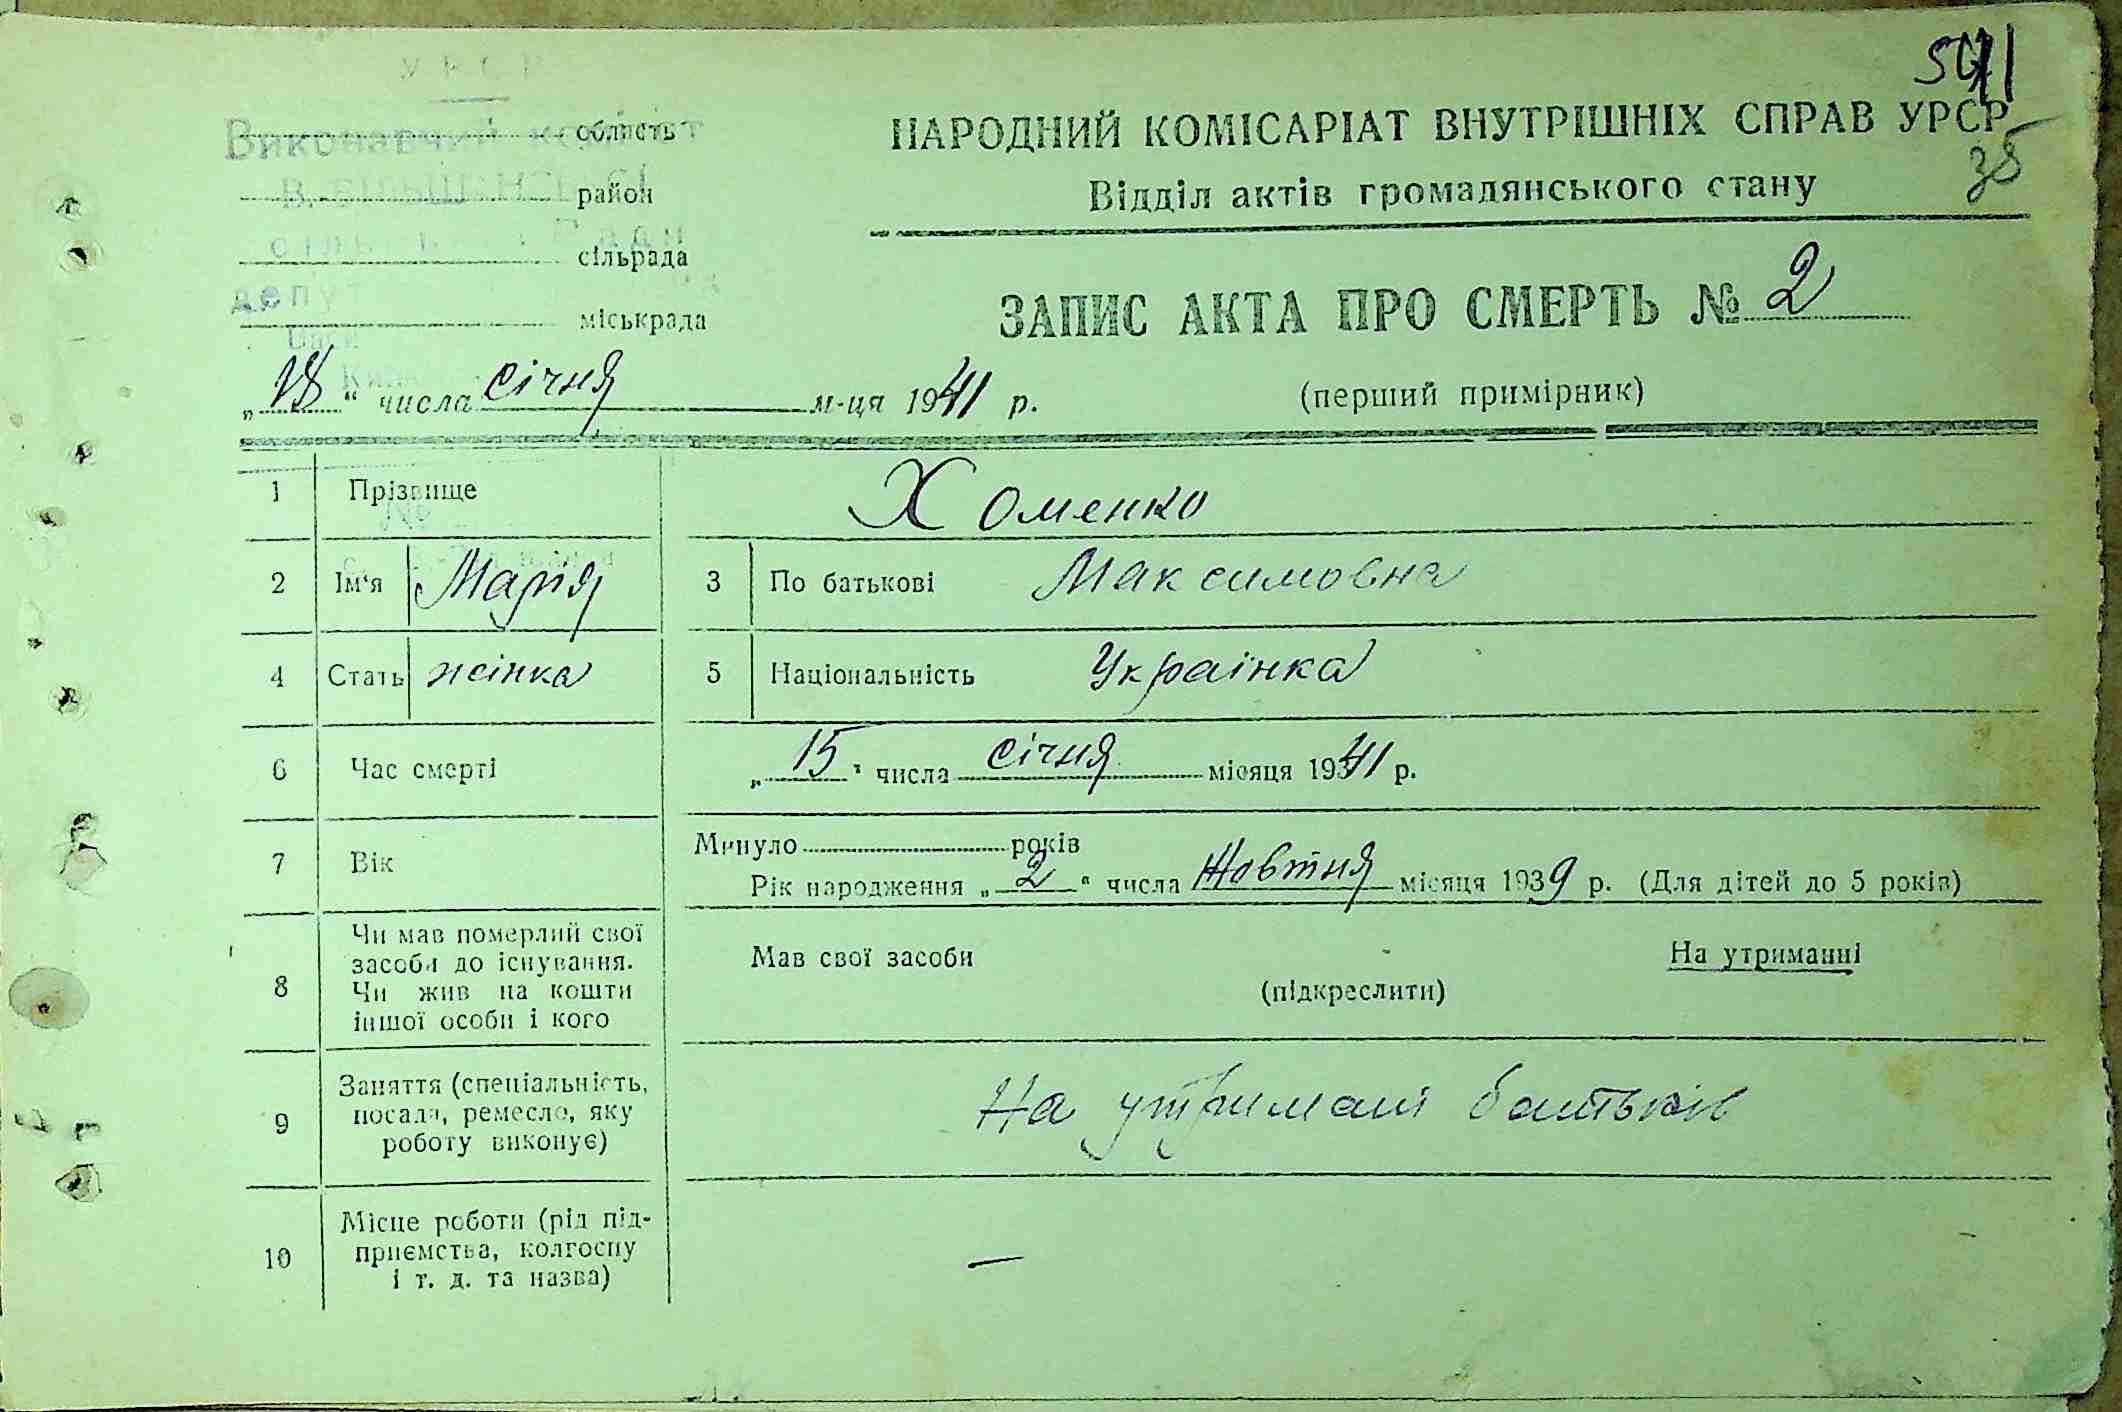 УРСР
Виконавчий комітет
область
район
сільрада
міськрада
НАРОДНИЙ КОМІСАРІАТ ВНУТРІШНІХ СПРАВ УРСР
38
Відділ актів громадянського стану
ЗАПИС АКТА ПРО СМЕРТЬ № 2
„18“ числа січня м-ця 1941 р.
(перший примірник)
1 Прізвище Хоменко
2 Ім'я Марія 3 По батькові Максимовна
4 Стать жінка 5 Національність Українка
6 Час смерті „15“ числа січня місяця 1941 р.
7 Вік Минуло років
Рік народження „2“ числа Жовтня місяця 1939 р. (Для дітей до 5 років)
8 Чи мав померлий свої
засоби до існування.
Чи жив на кошти
іншої особи і кого
Мав свої засоби На утриманні
(підкреслити)
9 Заняття (спеціальність,
посада, ремесло, яку
роботу виконує)
На утримані батьків
10 Місце роботи (рід під-
приємства, колгоспу
і т. д. та назва)
—